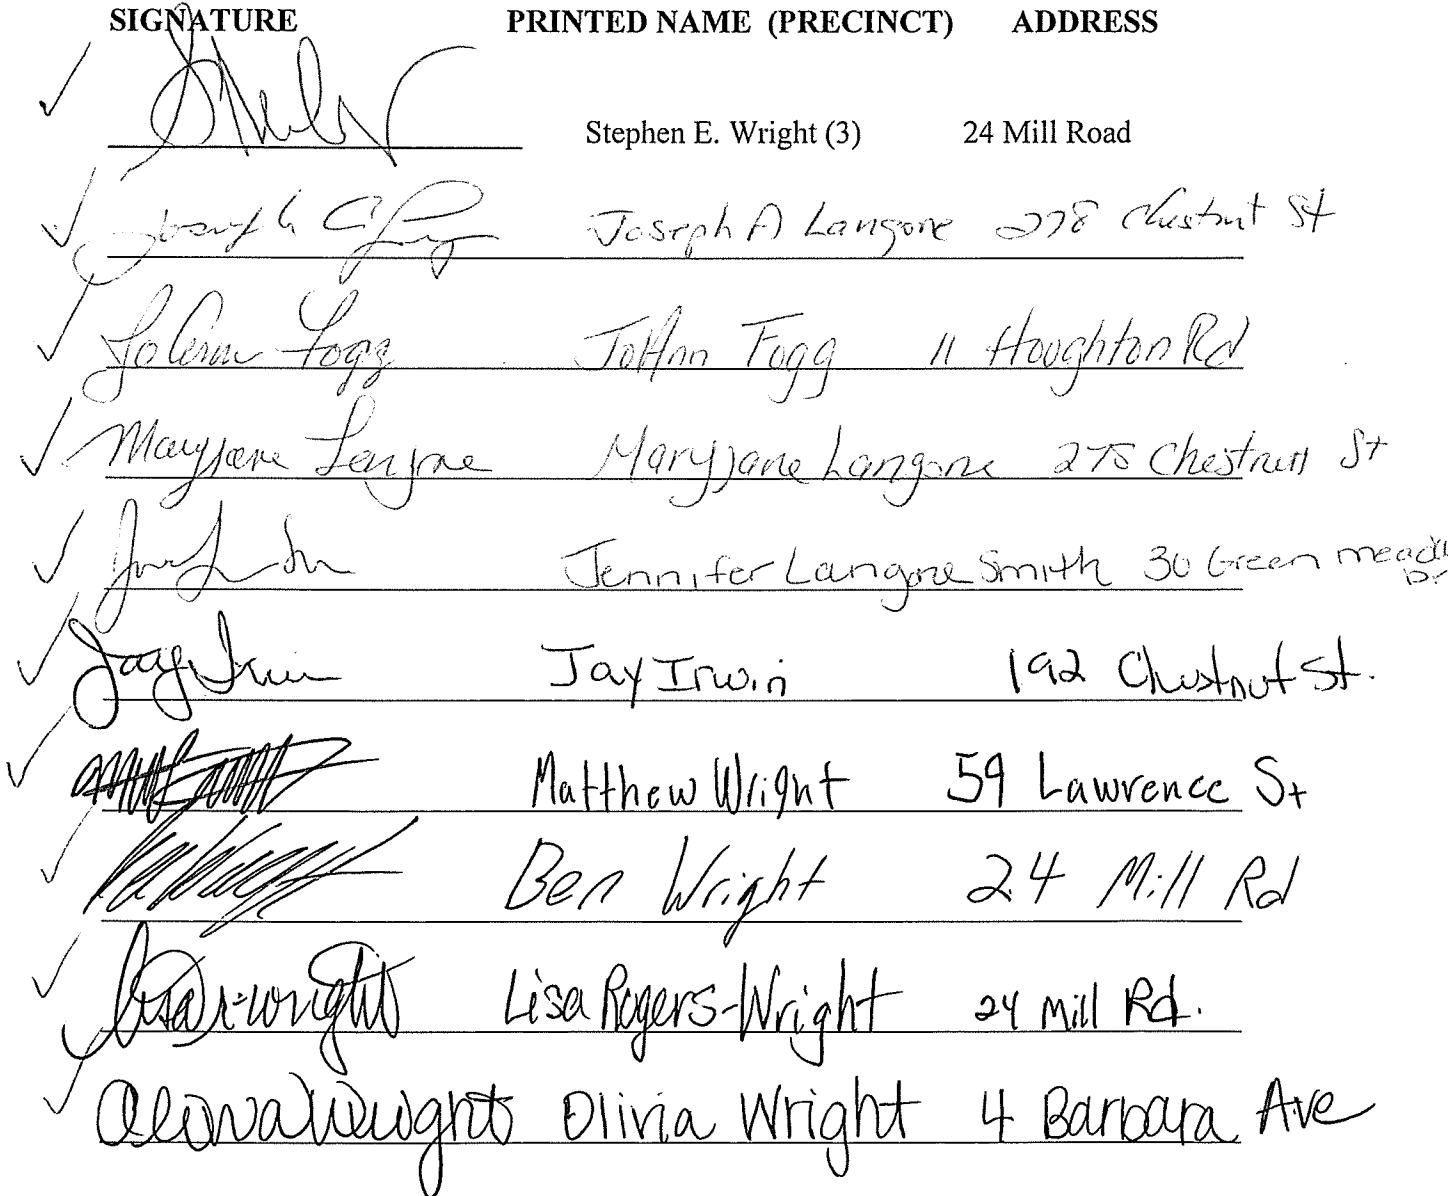 SIGNATURE PRINTED NAME (PRECINCT) ADDRESS
Stephen E. Wright (3) 24 Mill Road
Joseph A Langone 278 Chestnut St
JoAnn Fogg JoAnn Fogg 11 Houghton Rd
Maryjane Langone Maryjane Langone 275 Chestnut St
Jennifer Langone Smith 30 Green
Jay Irwin Jay Irwin 192 Chestnut St.
Matthew Wright 59 Lawrence St
Ben Wright 24 Mill Rd
Lisa R-Wright Lisa Rogers-Wright 24 Mill Rd.
Olivia Wright Olivia Wright 4 Barbara Ave